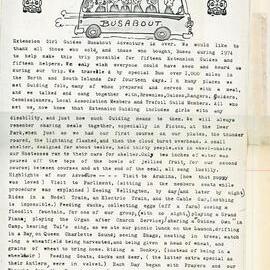 & BUSABOUT.
Extension Girl Guides Busabout Adventure is over. We would like to
thank all those who sold, and those who bought, Buses during 1974
to help make this trip possible for fifteen Extension Guides and
fifteen helpers. We only wish everyone could have seen and heard us
during our trip. We travelled by special Bus over 1,000 miles in
the North and South Islands for fourteen days. In many places we
met Guiding folk, many of whom prepared and served us with a meal,
and we talked and sang together with Brownies, Guides, Rangers, Guiders,
Commissioners, Local Association Members and Trefoil Guild Members. All who
met us, now know that Extension Guides includes girls with any
disability, and just how much Guiding means to them. We will always
remember sharing meals together, especially in Picton, at the Deer
Park, when just as we had our first course on our plates, the thunder
the lightning flashed, and then the cloud burst overhead. A small
shelter, designed for about twelve, held thirty people, at
to their cars for shelter. Only two inches of water was
poured off the tops of the bowls of Jellied fruit, for our second
between courses and at the end of the meal, all sang lustily.
Highlights of our Adventure :- Visit to
was Love) Visit to Parliament, (sitting in the members seats while
procedure was explained) Seeing Wellington, by day (and later by night)
Rides in a Model Train, an Electric Train, and the Cable Car, (nothing
is impossible), Feeding ducks, collecting eggs (off a farm) seeing a
floodlit fountain, for one of our group, (with no sight), playing a Grand
Piano, playing the Organ after Church Service; sharing a Guides Own in
Camp, hearing Tui's sing, as we ate our picnic lunch on the Beach, drifting
in a Bay on Queen Charlotte Sound; seeing Shags, nesting in trees, watch
-ing a wheatfield being harvested, and being given a head of wheat, and
grains of wheat to bring home. Riding a Donkey, (instead of being in a
wheelchair) Feeding Goats, ducks and Deer, ( the latter extra special as
their Antlers, were in velvet.) Each Day began with Prayers and our